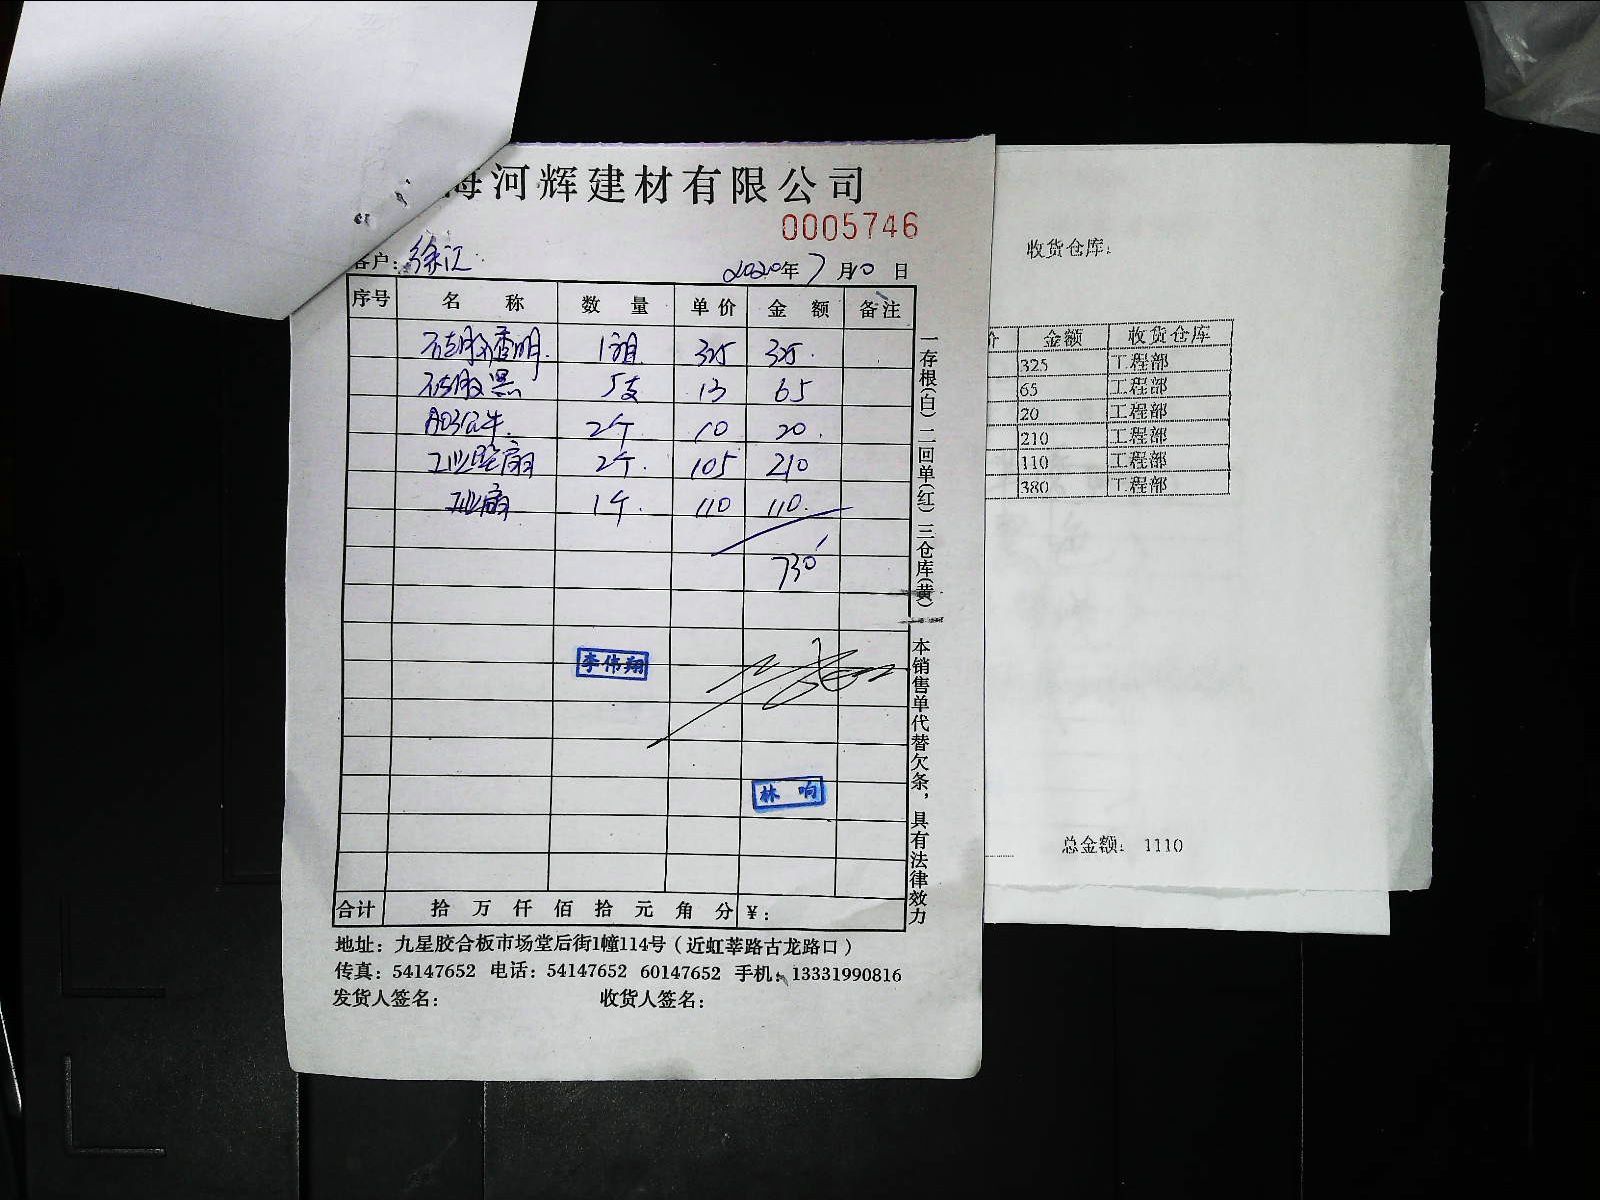 海河辉建材有限公司
0005746
客户：徐汇
2020年7月10日
序号 名称 数量 单价 金额 备注
1箱 325 325.
5支 13 65
2个 10 20.
2个. 105 210
工业扇 1个. 110 110.
730
李伟翔
林响
合计 拾 万 仟 佰 拾 元 角 分 ¥：
地址：九星胶合板市场堂后街1幢114号（近虹莘路古龙路口）
传真：54147652 电话：54147652 60147652 手机：13331990816
发货人签名： 收货人签名：
一存根(白)二回单(红)三仓库(黄)
本销售单代替欠条，具有法律效力
收货仓库：
价 金额 收货仓库
325 工程部
65 工程部
20 工程部
210 工程部
110 工程部
380 工程部
总金额： 1110